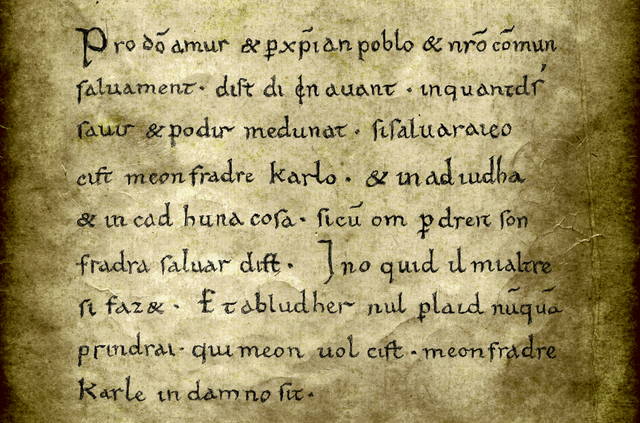 Pro dō amur & ꝑ xp̄ian poblo & nrō cōmun
saluament · dist di ꝯn auant · inquantdſ
sauir & podir medunat · sisaluaraieo
cist meonfradre Karlo · & in adiudha
& in cad huna cosa · sicū om ꝑ dreit son
fradra saluar dift · Ino quid il mialtre
si faz& · Et abludher nul plaid nūquā
prindrai · qui meon uol cist · meonfradre
Karle in damno sit ·